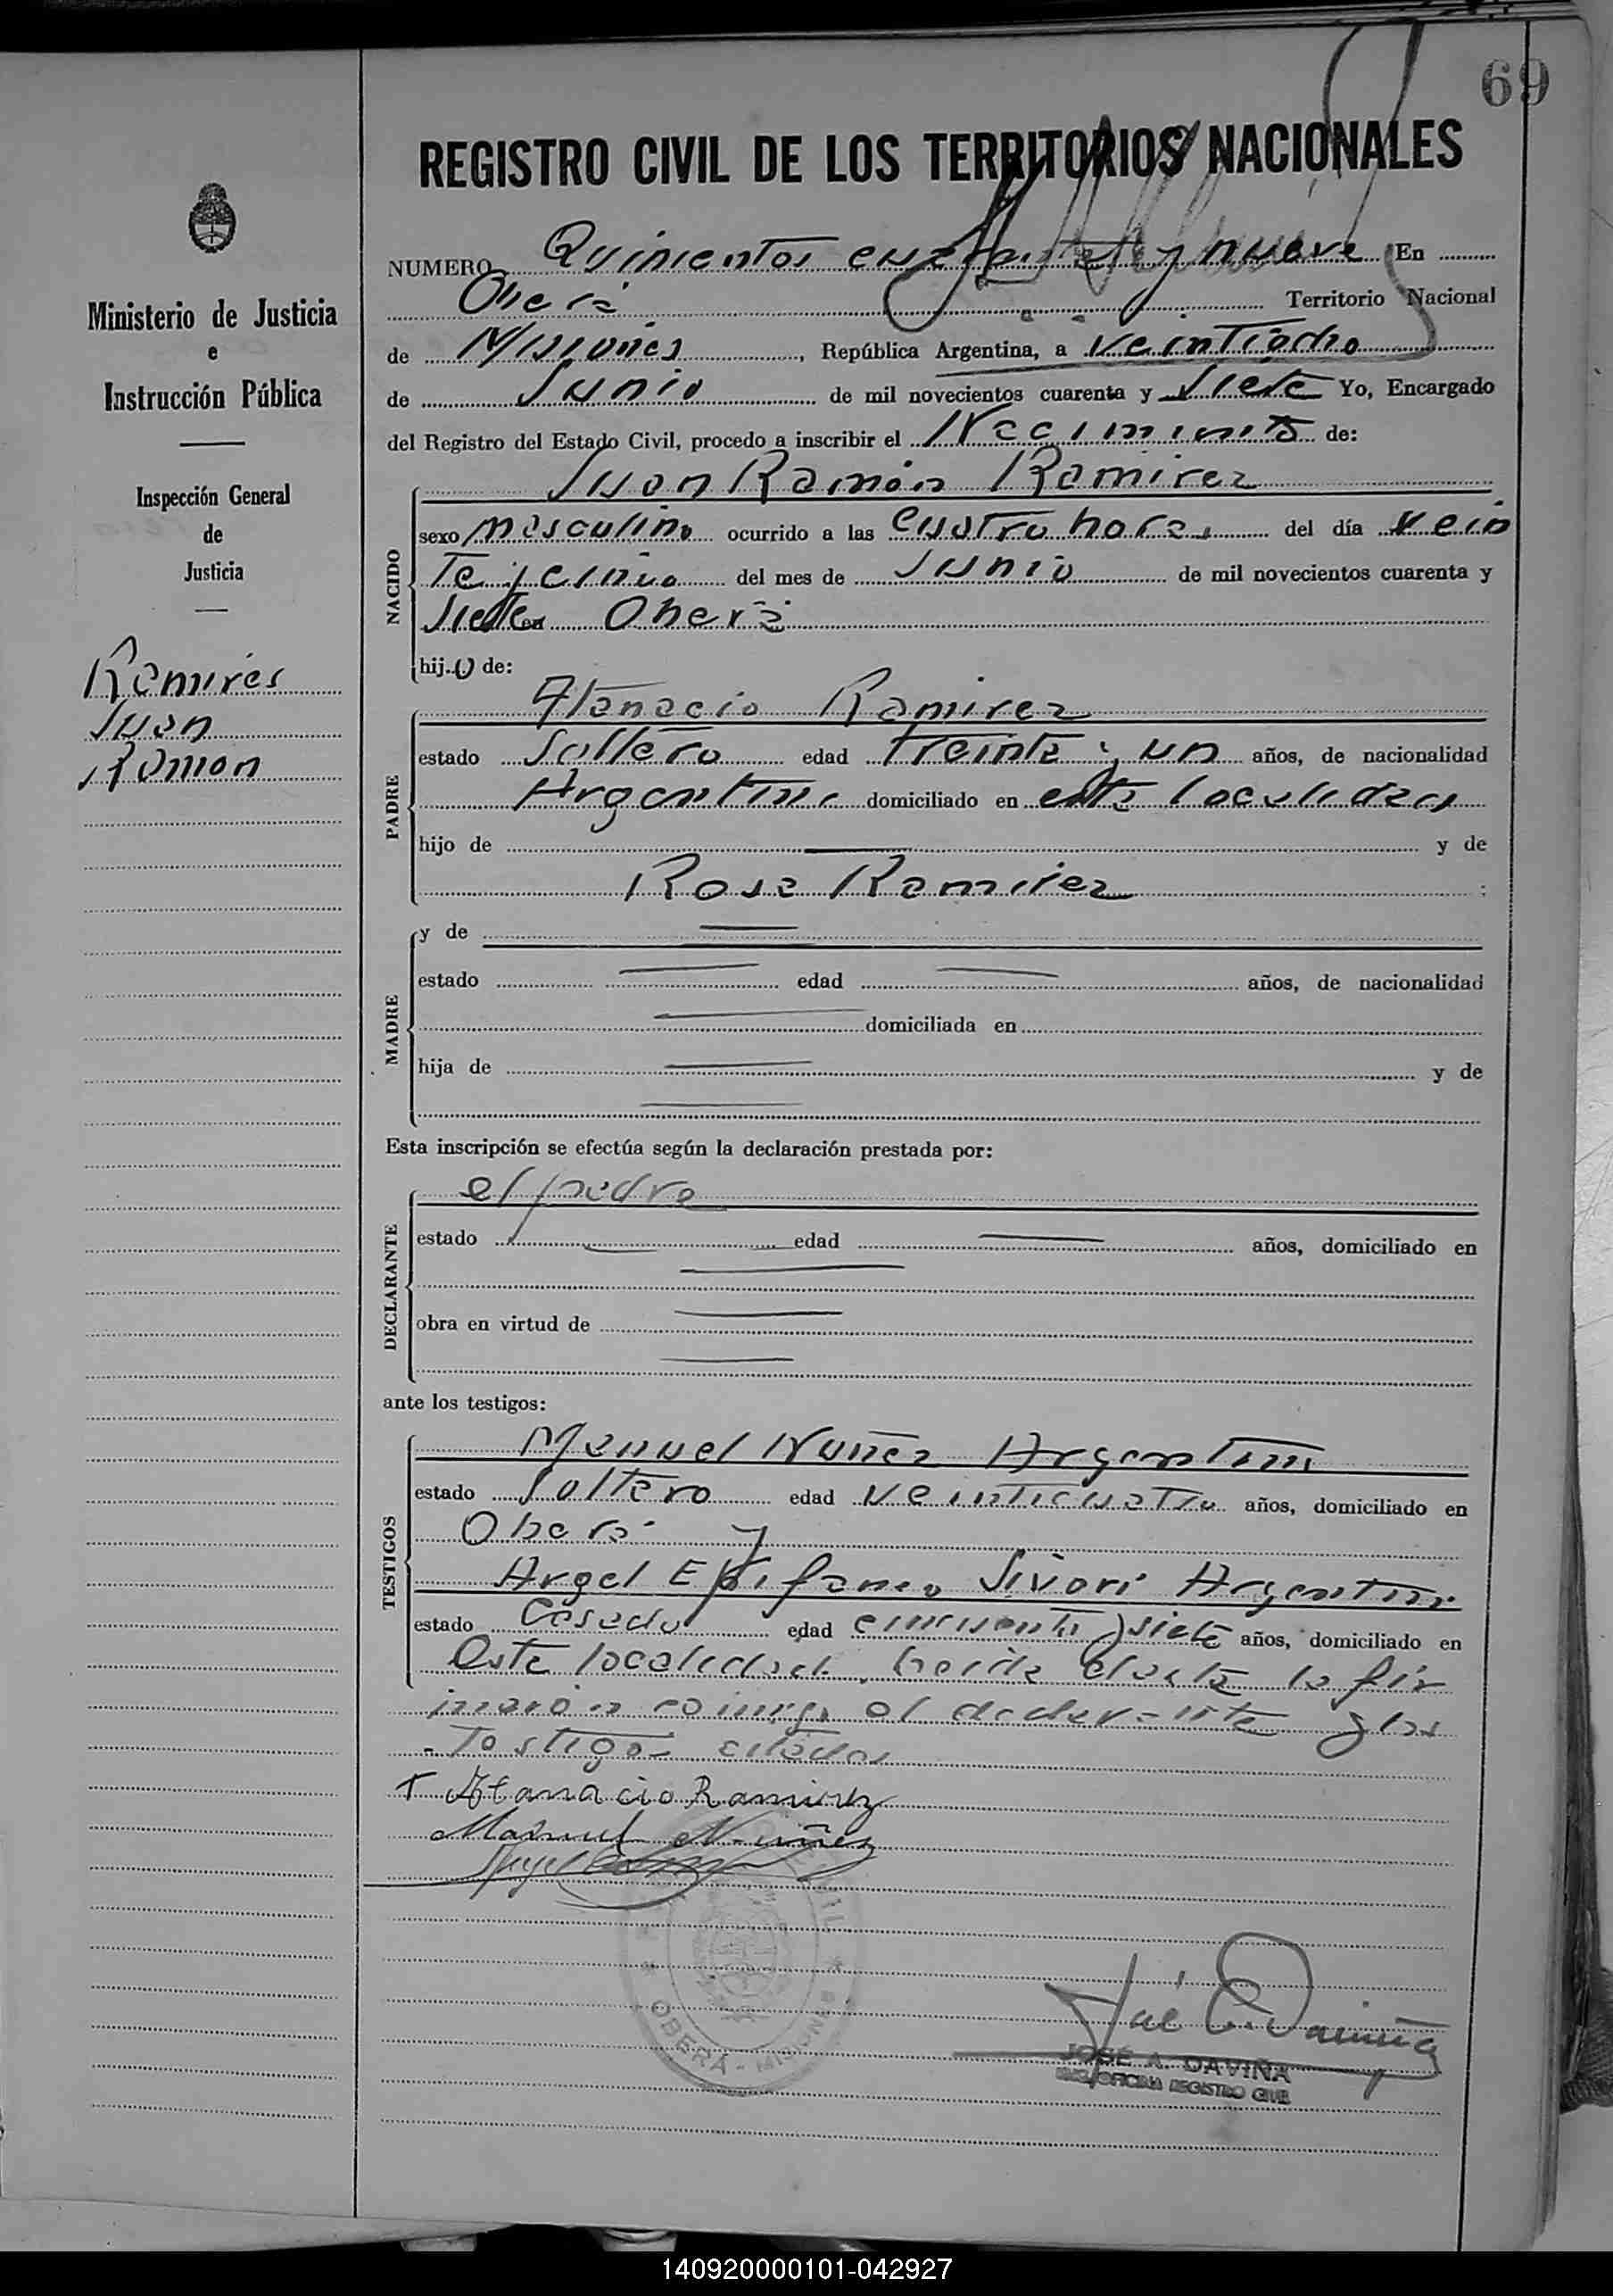 69
REGISTRO CIVIL DE LOS TERRITORIOS NACIONALES
NUMERO Quinientos cuarenta y nueve En
Oberá Territorio Nacional
de Misiones, República Argentina, a veintiocho
de Junio de mil novecientos cuarenta y siete Yo, Encargado
del Registro del Estado Civil, procedo a inscribir el Nacimiento de:
Juan Ramón Ramirez
NACIDO
sexo masculino ocurrido a las cuatro horas del día vein
te y cinco del mes de Junio de mil novecientos cuarenta y
siete en Oberá
hij.o de:
PADRE
Atanacio Ramirez
estado Soltero edad treinta y un años, de nacionalidad
Argentino domiciliado en esta localidad
hijo de y de
Rosa Ramirez
MADRE
y de
estado edad años, de nacionalidad
domiciliada en
hija de y de
Esta inscripción se efectúa según la declaración prestada por:
DECLARANTE
el padre
estado edad años, domiciliado en
obra en virtud de
ante los testigos:
TESTIGOS
Manuel Nuñez Argentino
estado Soltero edad veinticuatro años, domiciliado en
Oberá y
Angel Epifanio Sivori Argentino
estado Casado edad cincuenta y siete años, domiciliado en
esta localidad, leida el acta la fir
maron conmigo el declarante y los
Testigos citados
Atanacio Ramirez
Manuel Nuñez
OBERÁ - MISIONES
JOSÉ A. DAVIÑA
ENC. OFICINA REGISTRO CIVIL
Ministerio de Justicia
e
Instrucción Pública
Inspección General
de
Justicia
Ramires
Juan
Ramon
140920000101-042927